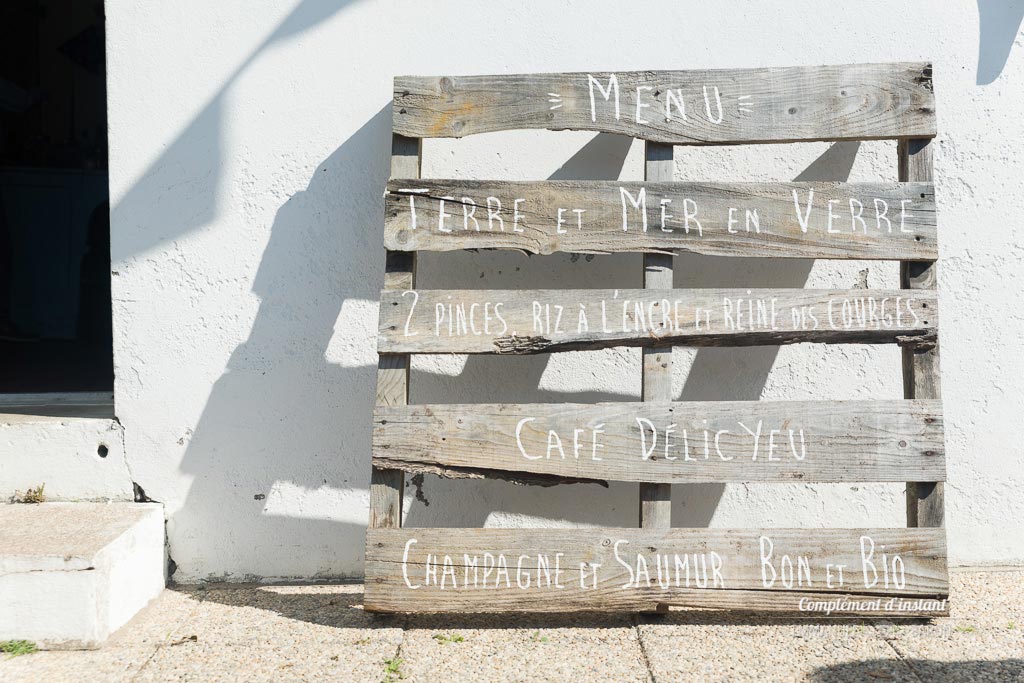 Menu
Terre et Mer en Verre
2 pinces, riz à l'encre et reine des courges
Café DélicYeu
Champagne et Saumur Bon et Bio
Complément d'instant